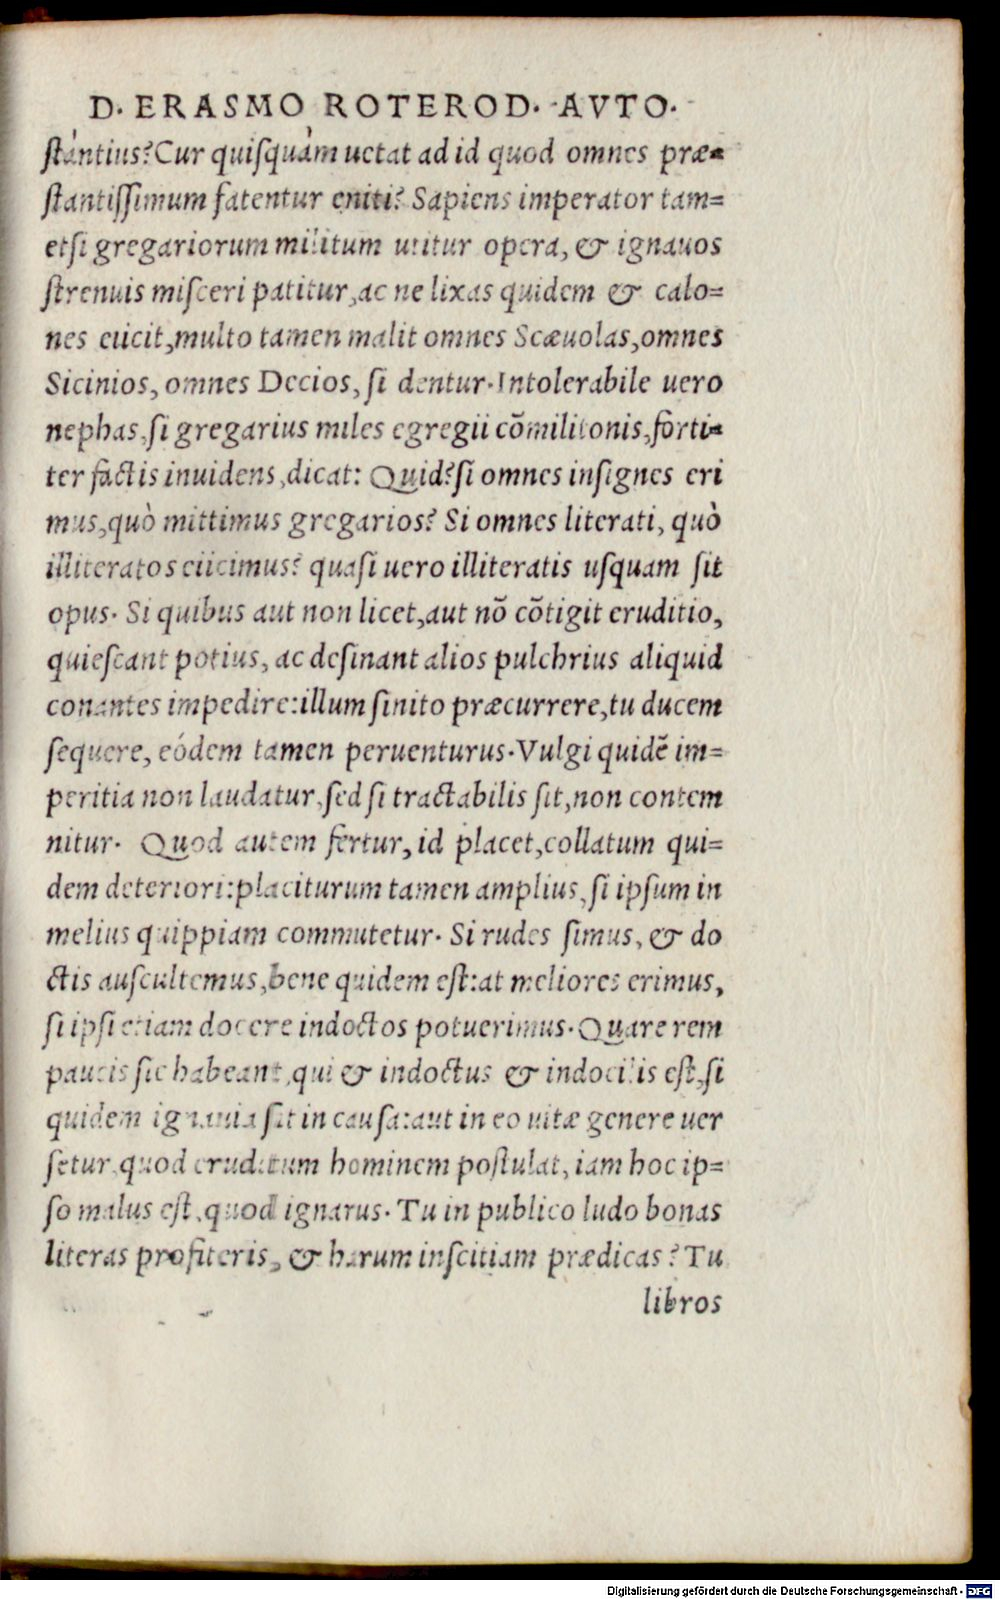 D. ERASMO ROTEROD. AVTO.
stantius? Cur quisquàm uetat ad id quod omnes præ=
stantissimum fatentur eniti? Sapiens imperator tam=
etsi gregariorum militum utitur opera, & ignauos
strenuis misceri patitur, ac ne lixas quidem & calo=
nes eiicit, multo tamen malit omnes Scæuolas, omnes
Sicinios, omnes Decios, si dentur. Intolerabile uero
nephas, si gregarius miles egregii cõmilitonis, forti=
ter factis inuidens, dicat: Quid? si omnes insignes eri
mus, quò mittimus gregarios? Si omnes literati, quò
illiteratos eiicimus? quasi uero illiteratis usquam sit
opus. Si quibus aut non licet, aut nõ cõtigit eruditio,
quiescant potius, ac desinant alios pulchrius aliquid
conantes impedire: illum sinito præcurrere, tu ducem
sequere, eódem tamen peruenturus. Vulgi quidẽ im=
peritia non laudatur, sed si tractabilis sit, non contem
nitur. Quod autem fertur, id placet, collatum qui=
dem deteriori: placiturum tamen amplius, si ipsum in
melius quippiam commutetur. Si rudes simus, & do
ctis auscultemus, bene quidem est: at meliores erimus,
si ipsi etiam docere indoctos potuerimus. Quare rem
paucis sic habeant, qui & indoctus & indocilis est, si
quidem ignauia sit in causa: aut in eo uitæ genere uer
setur, quod eruditum hominem postulat, iam hoc ip=
so malus est, quod ignarus. Tu in publico ludo bonas
literas profiteris, & harum inscitiam prædicas? Tu
libros
Digitalisierung gefördert durch die Deutsche Forschungsgemeinschaft - DFG